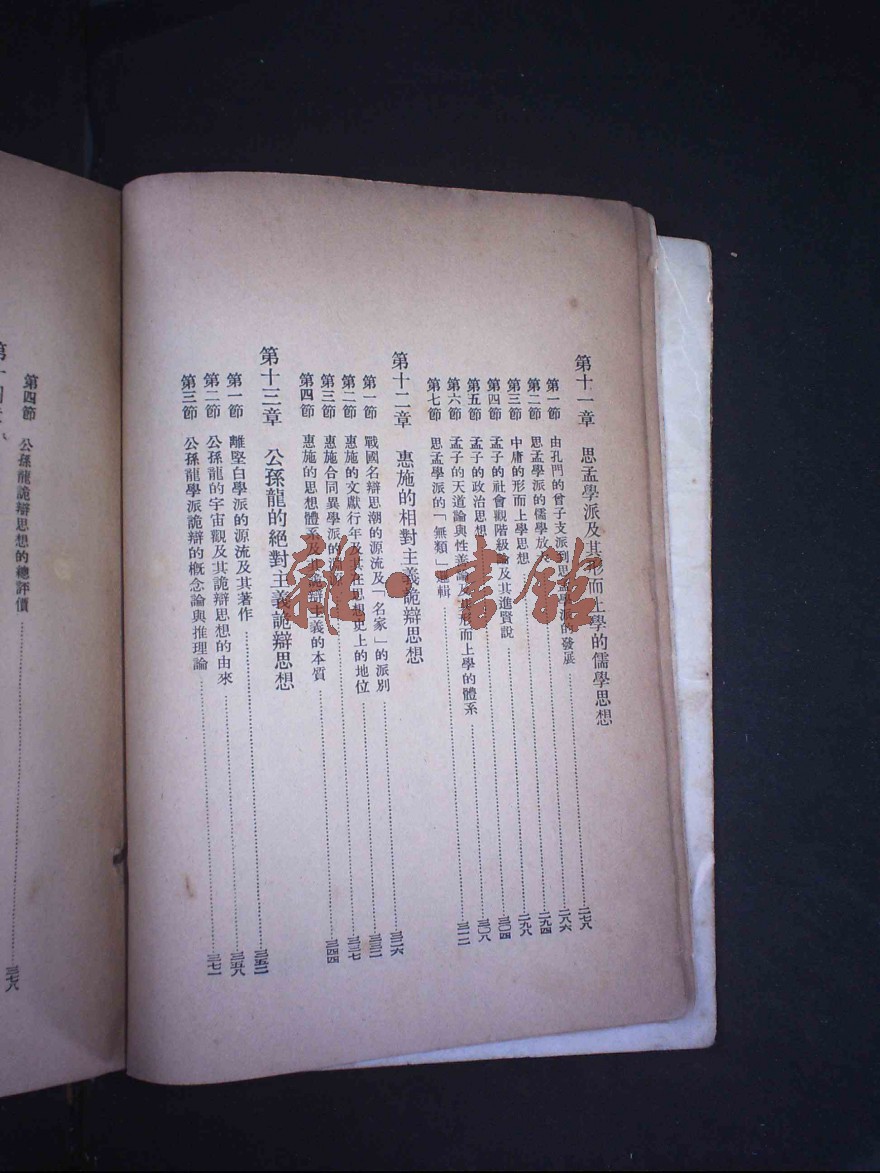 第十一章 思孟學派及其形而上學的儒學思想
第一節 由孔門的曾子支派到思孟學派的發展 二七八
第二節 思孟學派的儒學放 二八六
第三節 中庸的形而上學思想 二九四
第四節 孟子的社會觀階級論及其進賢說 二九八
第五節 孟子的政治思想 三〇四
第六節 孟子的天道論與性善論及其形而上學的體系 三〇八
第七節 思孟學派的「無類」邏輯 三一二
第十二章 惠施的相對主義詭辯思想
第一節 戰國名辯思潮的源流及「名家」的派別 三二六
第二節 惠施的文獻行年及其在思想史上的地位
第三節 惠施合同異學派的 三三七
第四節 惠施的思想體系及其詭辯主義的本質 三四四
第十三章 公孫龍的絕對主義詭辯思想
第一節 離堅白學派的源流及其著作 三五二
第二節 公孫龍的宇宙觀及其詭辯思想的由來 三五八
第三節 公孫龍學派詭辯的概念論與推理論 三七一
第四節 公孫龍詭辯思想的總評價 三七八
雜·書館